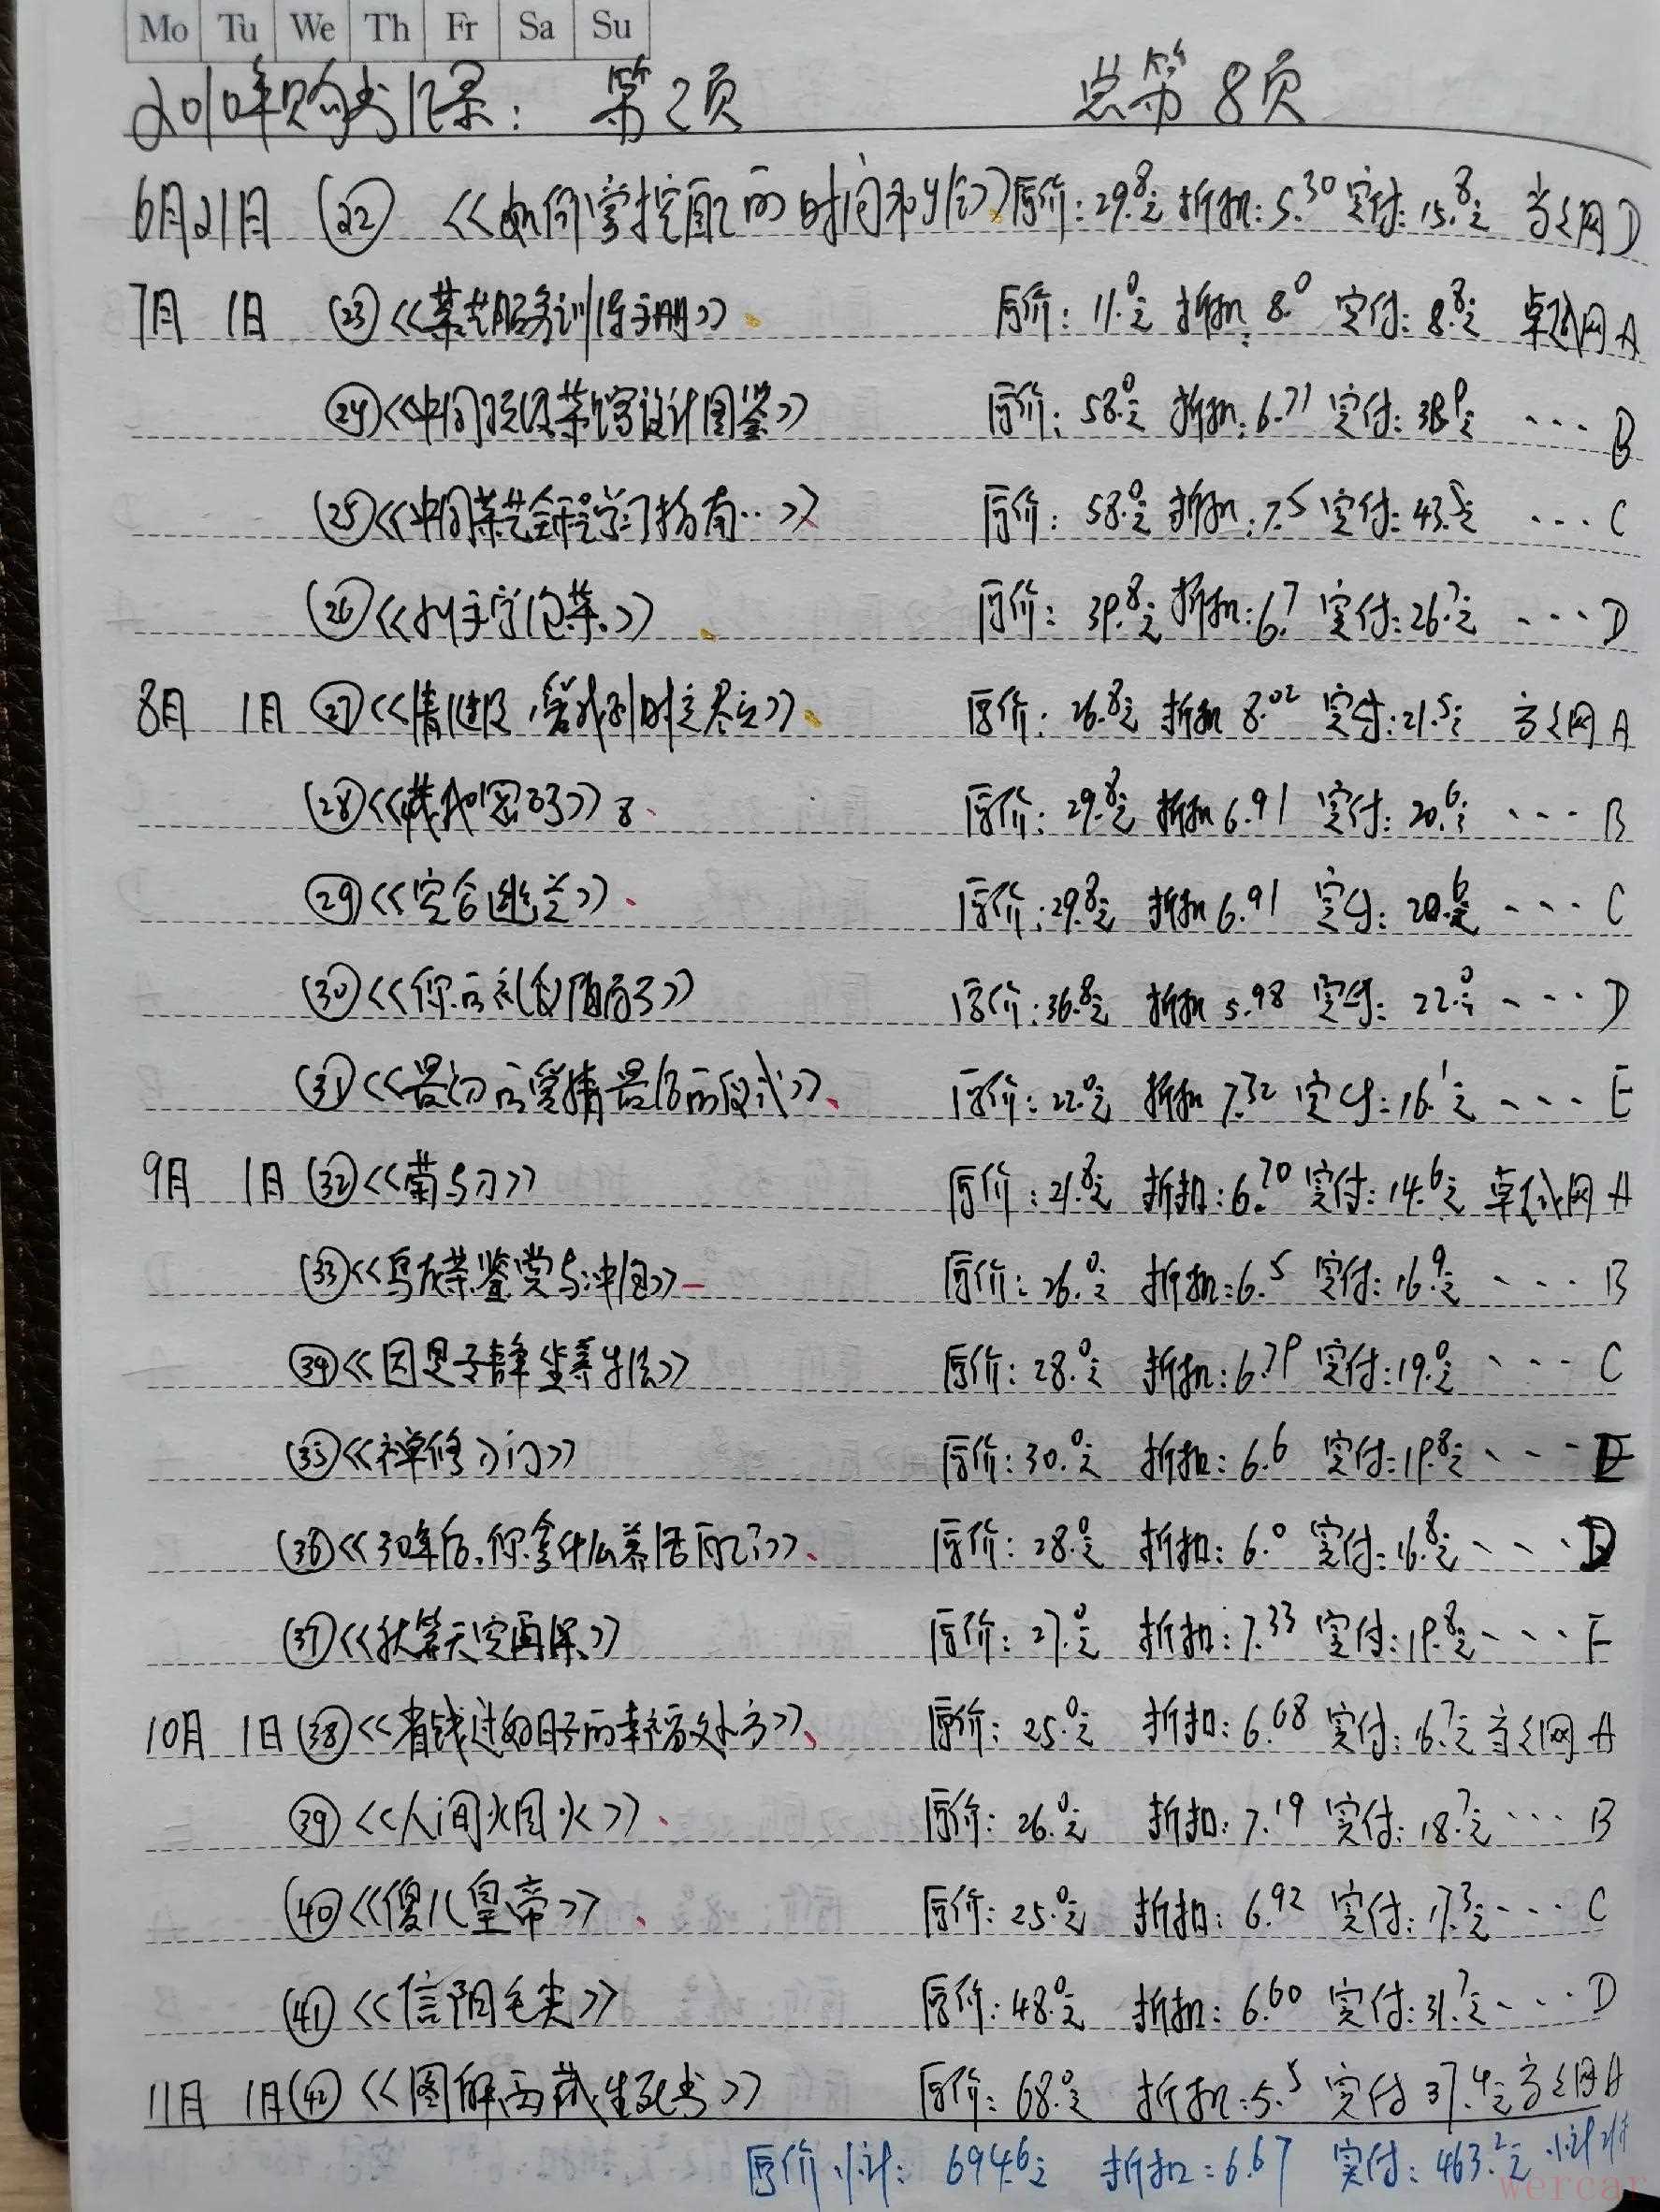 Mo Tu We Th Fr Sa Su
2010年购书记录： 第2页 总第8页
6月21日 ㉒ 《如何掌控自己的时间和生活》原价：29.8元 折扣：5.30 实付：15.8元 当当网D
7月 1日 ㉓《茶艺服务训练手册》 原价：11.0元 折扣：8.0 实付：8.8元 卓越网A
㉔《中国顶级茶馆设计图鉴》 原价：58.0元 折扣：6.71 实付：38.9元 ···· B
㉕《中国茶艺全程学习指南…》 原价：58.0元 折扣：7.5 实付：43.5元 ··· C
㉖《从手字泡茶》 原价：39.8元 折扣：6.7 实付：26.7元 ···· D
8月 1日 ㉗ 原价：26.8元 折扣 8.02 实付：21.5元 当当网A
㉘《藏地密码》8 原价：29.8元 折扣 6.91 实付：20.6元 ···· B
㉙《空谷幽兰》 原价：29.8元 折扣 6.91 实付：20.6元 ···· C
㉚《你的礼仪价值百万》 原价：36.8元 折扣 5.98 实付：22.0元 ···· D
㉛《最初的爱情最后的仪式》 原价：22.0元 折扣 7.32 实付：16.1元 ···· E
9月 1日 ㉜《菊与刀》 原价：21.8元 折扣：6.70 实付：14.6元 卓越网A
㉝《乌龙茶鉴赏与冲泡》 原价：26.0元 折扣：6.5 实付：16.9元 ···· B
㉞《因是子静坐养生法》 原价：28.0元 折扣：6.79 实付：19.0元 ···· C
㉟《禅修入门》 原价：30.0元 折扣：6.6 实付：19.8元 ···
㊱《30年后，你拿什么养活自己？》 原价：28.0元 折扣：6.0 实付：16.8元 ··· D
㊲《就等天空再深》 原价：27.0元 折扣：7.33 实付：19.8元 ···· F
10月 1日 ㊳《省钱过好日子的幸福处方》 原价：25.0元 折扣：6.68 实付：16.7元 当当网A
㊴《人间烟火》 原价：26.0元 折扣：7.19 实付：18.7元 ··· B
㊵《傻儿皇帝》 原价：25.0元 折扣：6.92 实付：17.3元 ···· C
㊶《信阳毛尖》 原价：48.0元 折扣：6.60 实付：31.7元 ···· D
11月 1日㊷《图解西藏生死书》 原价：68.0元 折扣：5.5 实付 37.4元 当当网A
原价小计：694.6元 折扣：6.67 实付：463.2元 小计21本